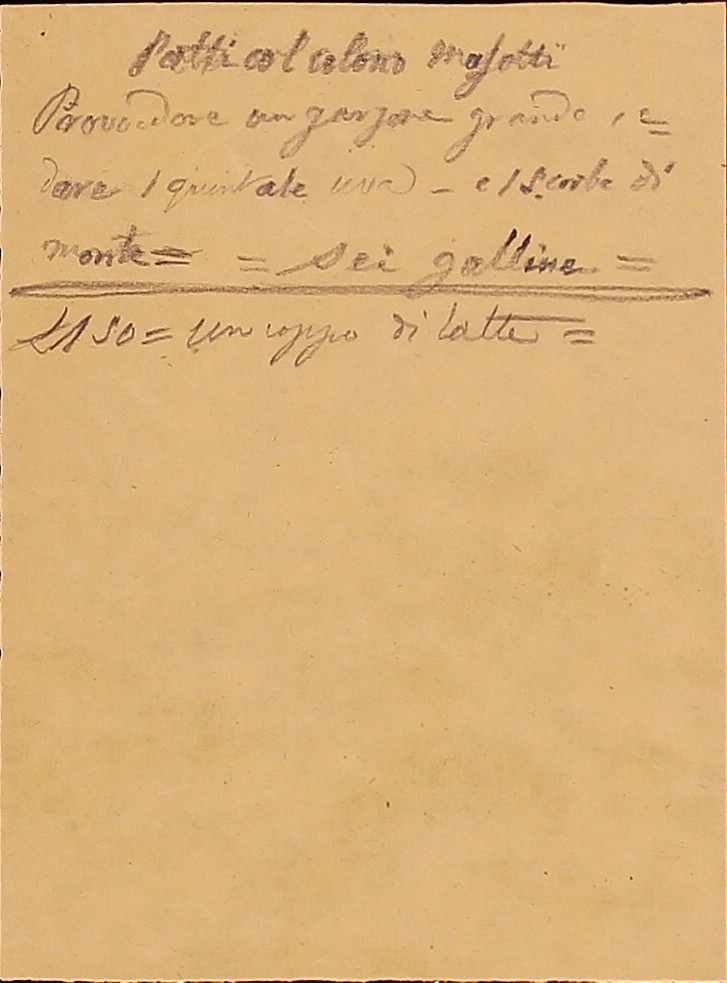 Patti col colono Masotti
Provvedere un garzone grande, e
dare 1 quintale uva – e 15 corbe di
monte = = sei galline =
£150 = un coppo di latte =